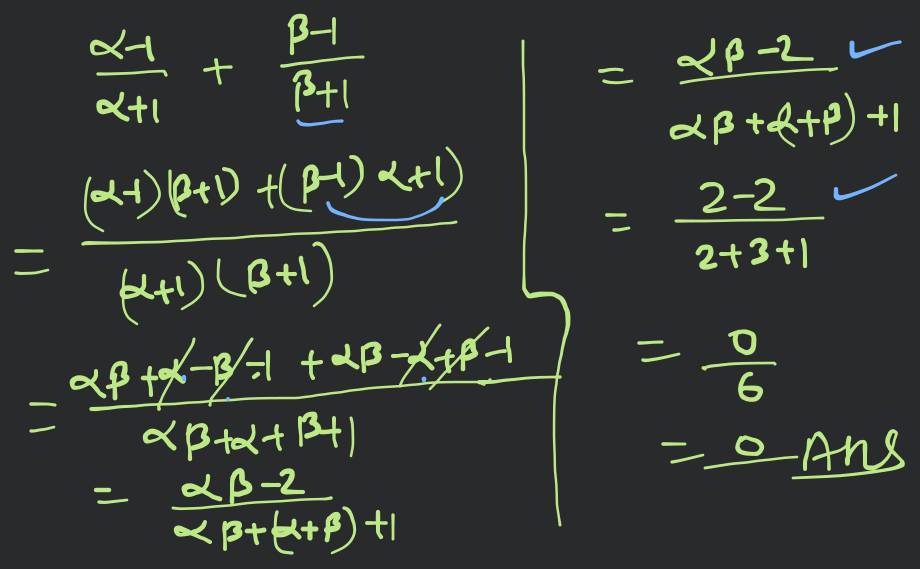 α-1/α+1 + β-1/β+1
= (α-1)(β+1) + (β-1) α+1)/(α+1)(β+1)
= αβ+α-β-1 + αβ-α+β-1/αβ+α+β+1
= αβ-2/αβ+(α+β)+1
= αβ-2/αβ+(α+β)+1
= 2-2/2+3+1
= 0/6
= 0 Ans